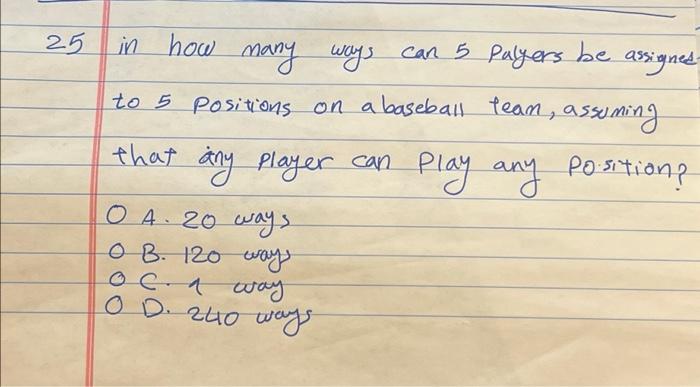 25 in how many ways can 5 Palyers be assigned
to 5 Positions on a baseball team, assuming
that any Player can Play any Position?
O A. 20 ways
O B. 120 ways
O C. 1 way
O D. 240 ways